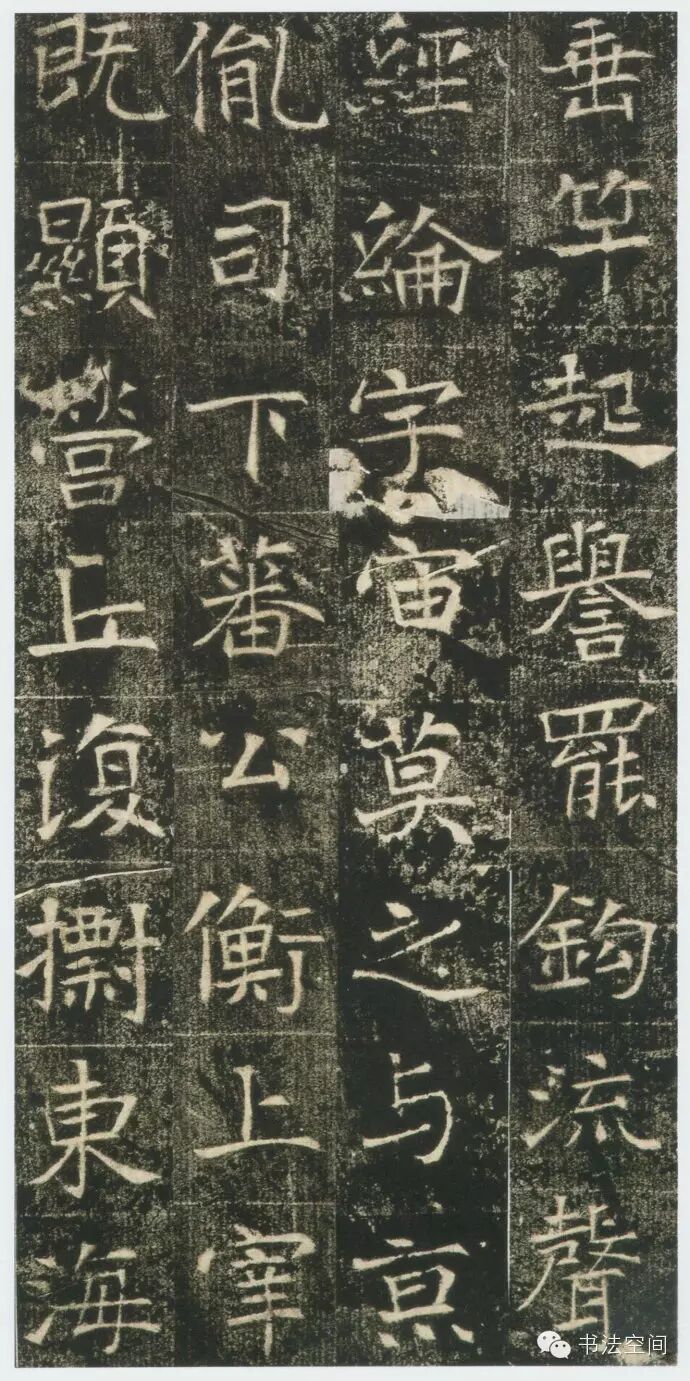 垂竿起譽罷鈎流聲
經綸宇宙莫之与亰
胤司下蕃公衡上宰
既顯營丘復東海
书法空间